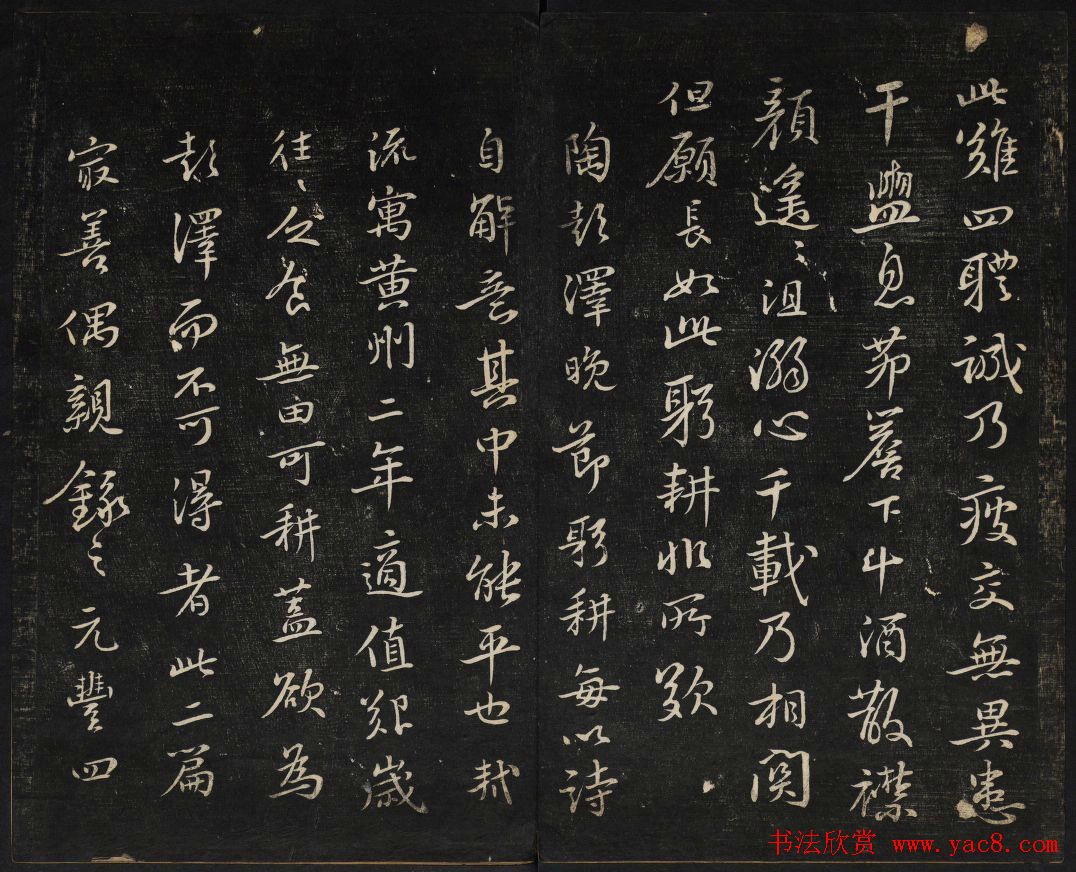 此難四體誠乃疲交無異患
干盥息茆簷下斗酒散襟
顏遙〻沮溺心千載乃相関
但願長如此躬耕非所歎
陶彭澤晚節躬耕每以詩
自解意其中未能平也軾
流寓黄州二年適值艱歲
往〻乏食無田可耕蓋欲為
彭澤而不可得者此二篇
最善偶親錄之元豐四
书法欣赏 www.yac8.com